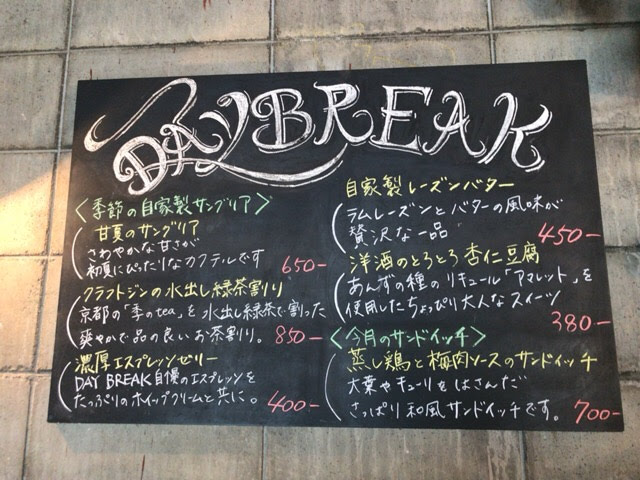 DAYBREAK
〈季節の自家製サングリア〉
甘夏のサングリア
さわやかな甘さが
初夏にぴったりなカクテルです
650-
クラフトジンの水出し緑茶割り
京都の「季のtea」を水出し緑茶で割った
爽やかで品の良いお茶割り。 850-
濃厚エスプレッソゼリー
DAY BREAK自慢のエスプレッソを
たっぷりのホイップクリームと共に。 400-
自家製レーズンバター
ラムレーズンとバターの風味が
贅沢な一品
450-
洋酒のとろとろ杏仁豆腐
あんずの種のリキュール「アマレット」を
使用したちょっぴり大人なスイーツ
380-
〈今月のサンドイッチ〉
蒸し鶏と梅肉ソースのサンドイッチ
大葉やキューリをはさんだ
さっぱり和風サンドイッチです。 700-